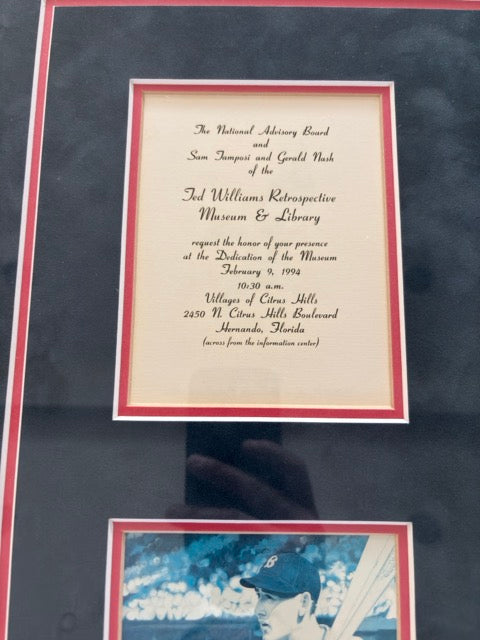 The National Advisory Board
and
Sam Tamposi and Gerald Nash
of the
Ted Williams Retrospective
Museum & Library
request the honor of your presence
at the Dedication of the Museum
February 9, 1994
10:30 a.m.
Villages of Citrus Hills
2450 N. Citrus Hills Boulevard
Hernando, Florida
(across from the information center)
B